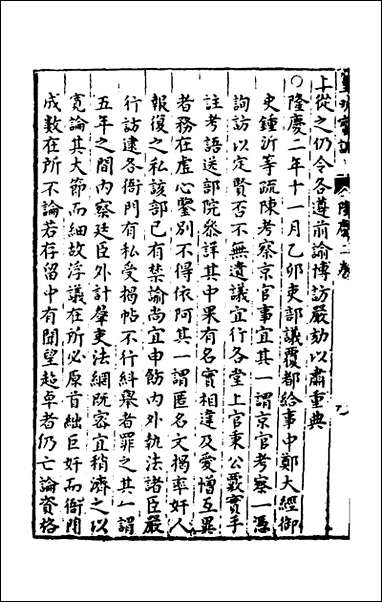 上從之仍令各遵前諭博訪嚴劾以肅重典
○隆慶二年十一月乙卯吏部議覆都給事中鄭大經御
史鍾沂等疏陳考察京官事宜其一謂京官考察一憑
詢訪以定賢否不無遺議宜行各堂上官秉公覈實手
註考語送部院叅詳其中果有名實相違及愛憎互異
者務在虛心鑒別不得依阿其一謂匿名文揭率奸人
報復之私該部已有禁諭尚宜申飭內外執法諸臣嚴
行訪逮各衙門有私受揭帖不行糾舉者罪之其一謂
五年之間內察廷臣外計羣吏法網旣容宜稍濟之以
寬論其大節而細故浮議在所必原首絀巨奸而衙門
成數在所不論若存留中有聞望超卓者仍亡論資格